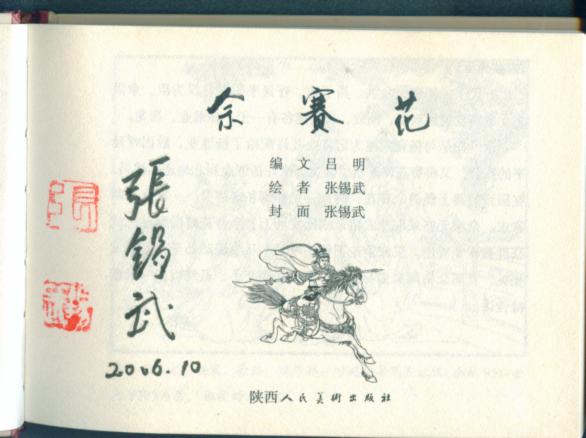 佘賽花
编 文 吕 明
绘 者 张锡武
封 面 张锡武
張錫武
2006.10
陕西人民美術出版社